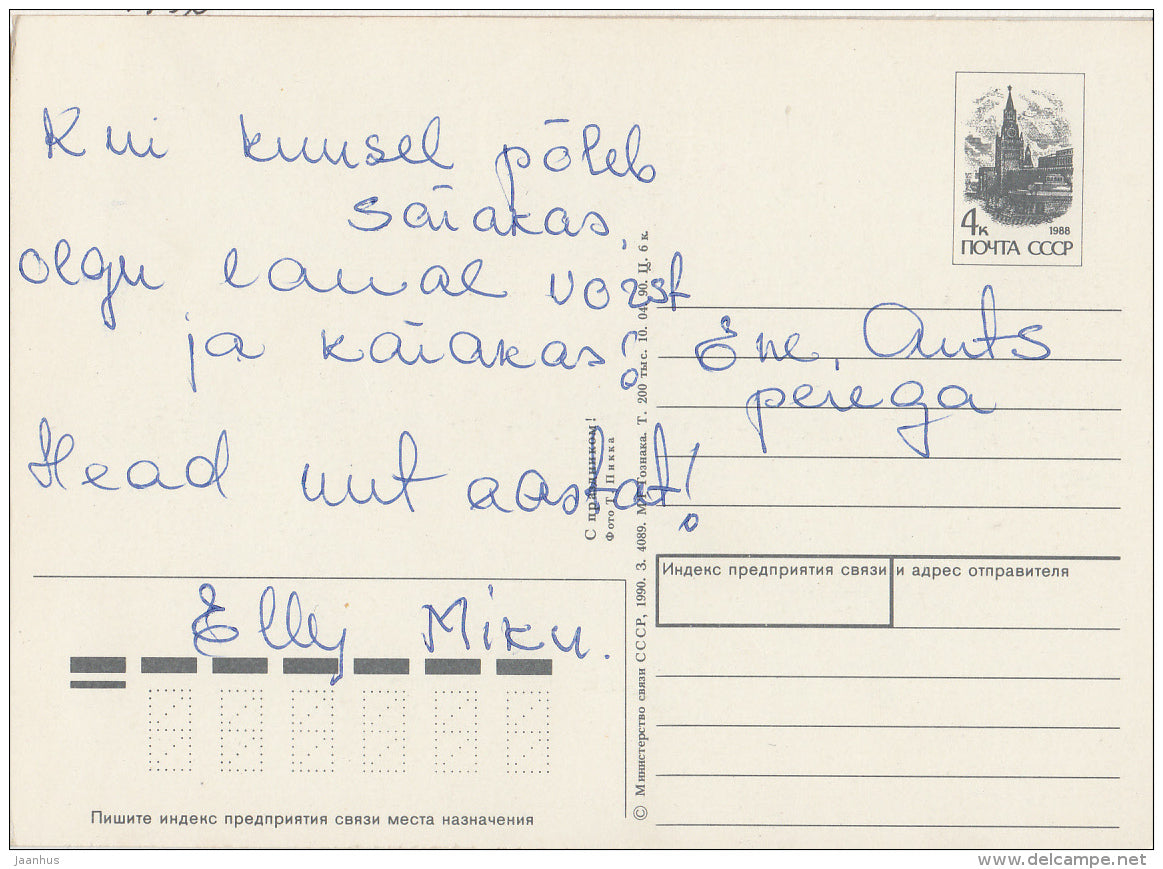 Kui kuusel põleb
säiakas,
olgu laual vorst
ja käiakas!
Head uut aastat!
Elly Miku.
Ene, Ants
perega
4к
1988
ПОЧТА СССР
С праздником!
Фото Т. Пикка
© Министерство связи СССР, 1990. З. 4089. МПФ Гознака. Т. 200 тыс. 10. 04. 90. Ц. 6 к.
Индекс предприятия связи и адрес отправителя
Пишите индекс предприятия связи места назначения
jaanhus
delcampe.net